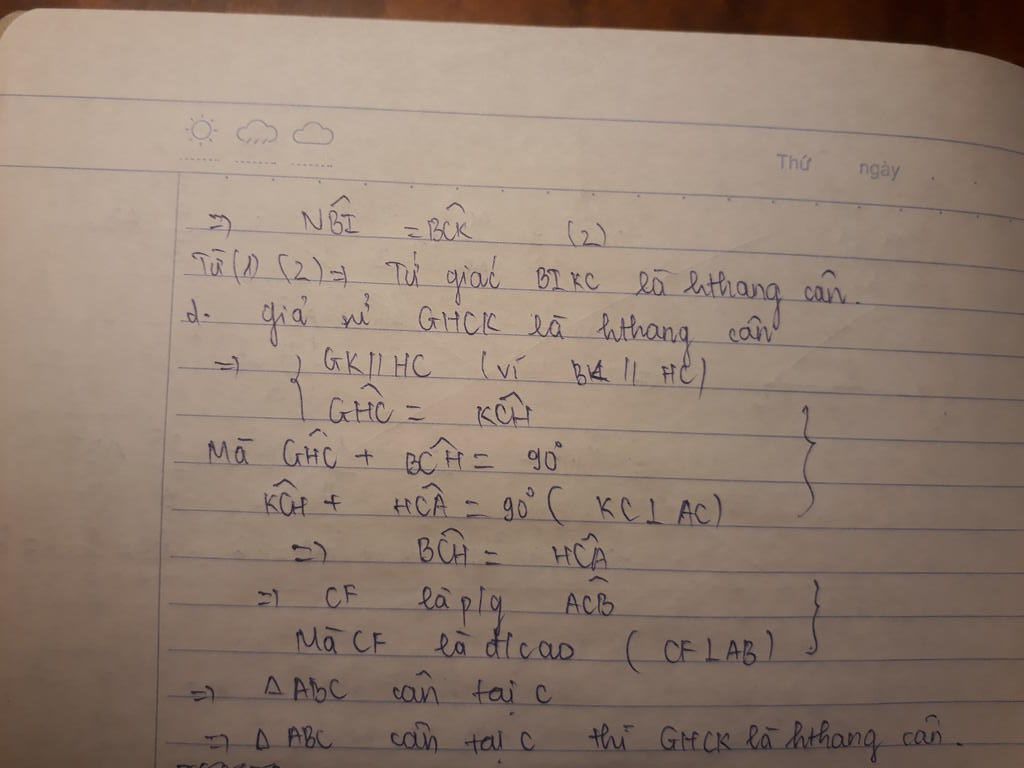 Thứ ngày
=> NB̂I = BĈK (2)
Từ (1) (2) => Tứ giác BIKC là hthang cân.
d. giả sử GHCK là hthang cân
=> { GK // HC (vì BK // HC)
GĤC = KĈH }
Mà GĤC + BĈH = 90°
KĈH + HĈA = 90° ( KC ⊥ AC)
=> BĈH = HĈA
=> CF là p/g AĈB }
Mà CF là đ/cao ( CF ⊥ AB)
=> Δ ABC cân tại C
=> Δ ABC cân tại C thì GHCK là hthang cân.